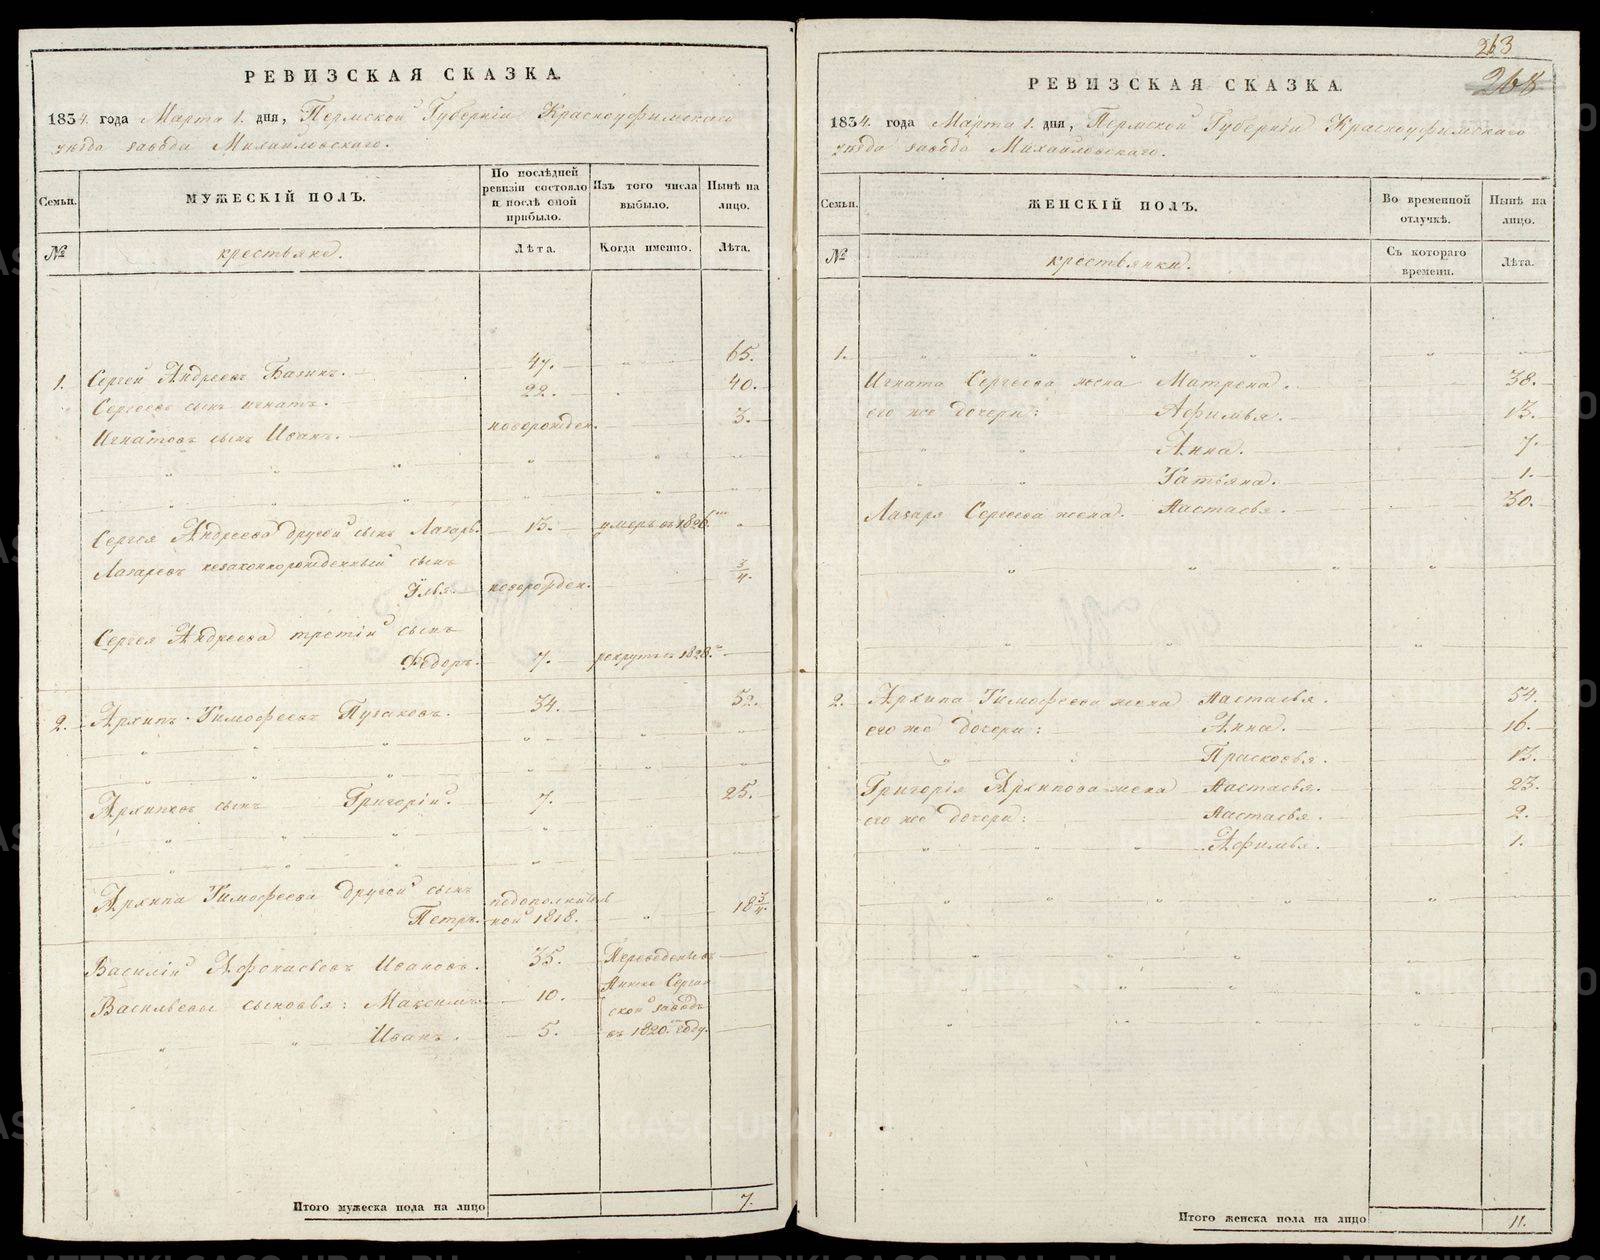 РЕВИЗСКАЯ СКАЗКА.
1834. года Марта 1. дня, Пермской Губерніи Красноуфимскаго
уѣзда завода Михайловскаго.
Семьи.
МУЖЕСКІЙ ПОЛЪ.
По послѣдней ревизіи состояло и послѣ оной прибыло.
Изъ того числа выбыло.
Нынѣ на лицо.
№
крестьяне.
Лѣта.
Когда именно.
Лѣта.
1. Сергей Андреевъ Базинъ. 47. 65.
Сергеевъ сынъ Игнатъ. 22. 40.
Игнатовъ сынъ Иванъ. новорожден. 3.
Сергея Андреева другой сынъ Лазарь. 13. умеръ въ 1826.
Лазаревъ незаконнорожденный сынъ
Илья. новорожден. 3/4.
Сергея Андреева третій сынъ
Федоръ. 7. рекрутъ 1828.
2. Архипъ Тимофеевъ Пузаковъ. 34. 52.
Архиповъ сынъ Григорій. 7. 25.
Архипа Тимофеева другой сынъ
Петръ. 1818. 18 3/4.
Василій Афонасьевъ Ивановъ. 35. Переведены въ
Васильевы сыновья: Максимъ 10. Нижне Сергин
ской заводъ
Иванъ. 5. въ 1820. году.
Итого мужеска пола на лицо 7.
263
268
РЕВИЗСКАЯ СКАЗКА.
1834. года Марта 1. дня, Пермской Губерніи Красноуфимскаго
уѣзда завода Михайловскаго.
Семьи.
ЖЕНСКІЙ ПОЛЪ.
Во временной отлучкѣ.
Нынѣ на лицо.
№
крестьянки.
Съ котораго времени.
Лѣта.
1.
Игната Сергеева жена Матрена. 38.
его же дочери: Афимья. 13.
Анна. 7.
Татьяна. 1.
Лазаря Сергеева жена. Настасья. 30.
2. Архипа Тимофеева жена Настасья. 54.
его же дочери: Анна. 16.
Прасковья. 13.
Григорія Архипова жена Настасья. 23.
его же дочери: Настасья. 2.
Афимья. 1.
Итого женска пола на лицо 11.
METRIKI.GASO-URAL.RU